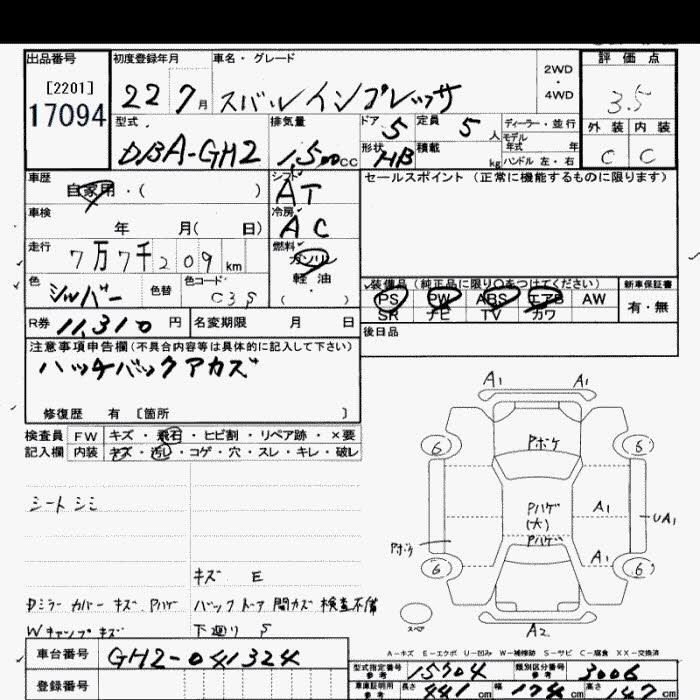 出品番号 初度登録年月 車名・グレード 2WD・4WD 評価点
[2201]
17094
22 7月 スバルインプレッサ 3.5
型式 排気量 ドア 5 定員 5人 ディーラー・並行 外装 内装
モデル年式 年
DBA-GH2 1,500cc 形状 HB 積載 kg ハンドル 左・右 C C
車歴 自家用・( ) シフト AT セールスポイント(正常に機能するものに限ります)
車検 年 月( 日) 冷房 AC
走行 7万7千209km 燃料 ガソリン
軽油
・( )
色 シルバー 色替 色コード C3S
装備品(純正品に限り○をつけてください) 新車保証書
PS PW ABS エアB AW 有・無
SR ナビ TV カワ
R券 11,310円 名変期限 月 日
後日品
注意事項申告欄(不具合内容等は具体的に記入して下さい)
ハッチバックアカズ
修復歴 有〔箇所 〕
検査員 FW キズ・飛石・ヒビ割・リペア跡・×要
記入欄 内装 キズ・汚し・コゲ・穴・スレ・キレ・破レ
シート シミ
キズ E
Dミラー カバー キズ Pハゲ バックドア 開カズ 検査不備
Wキャップキズ 下廻り S
A1 A1
Pボケ
6 6
Pハゲ
(大)
A1
UA1
Pボケ
Pハゲ
A1
6 6
スペア
A2
A-キズ E-エクボ U-凹み W-補修跡 S-サビ C-腐食 XX-交換済
車台番号 GH2-041324
型式指定番号 参考 15704 類別区分番号 参考 3006
登録番号
車庫証明用 参考 長さ 441cm 幅 174cm 高さ 147cm